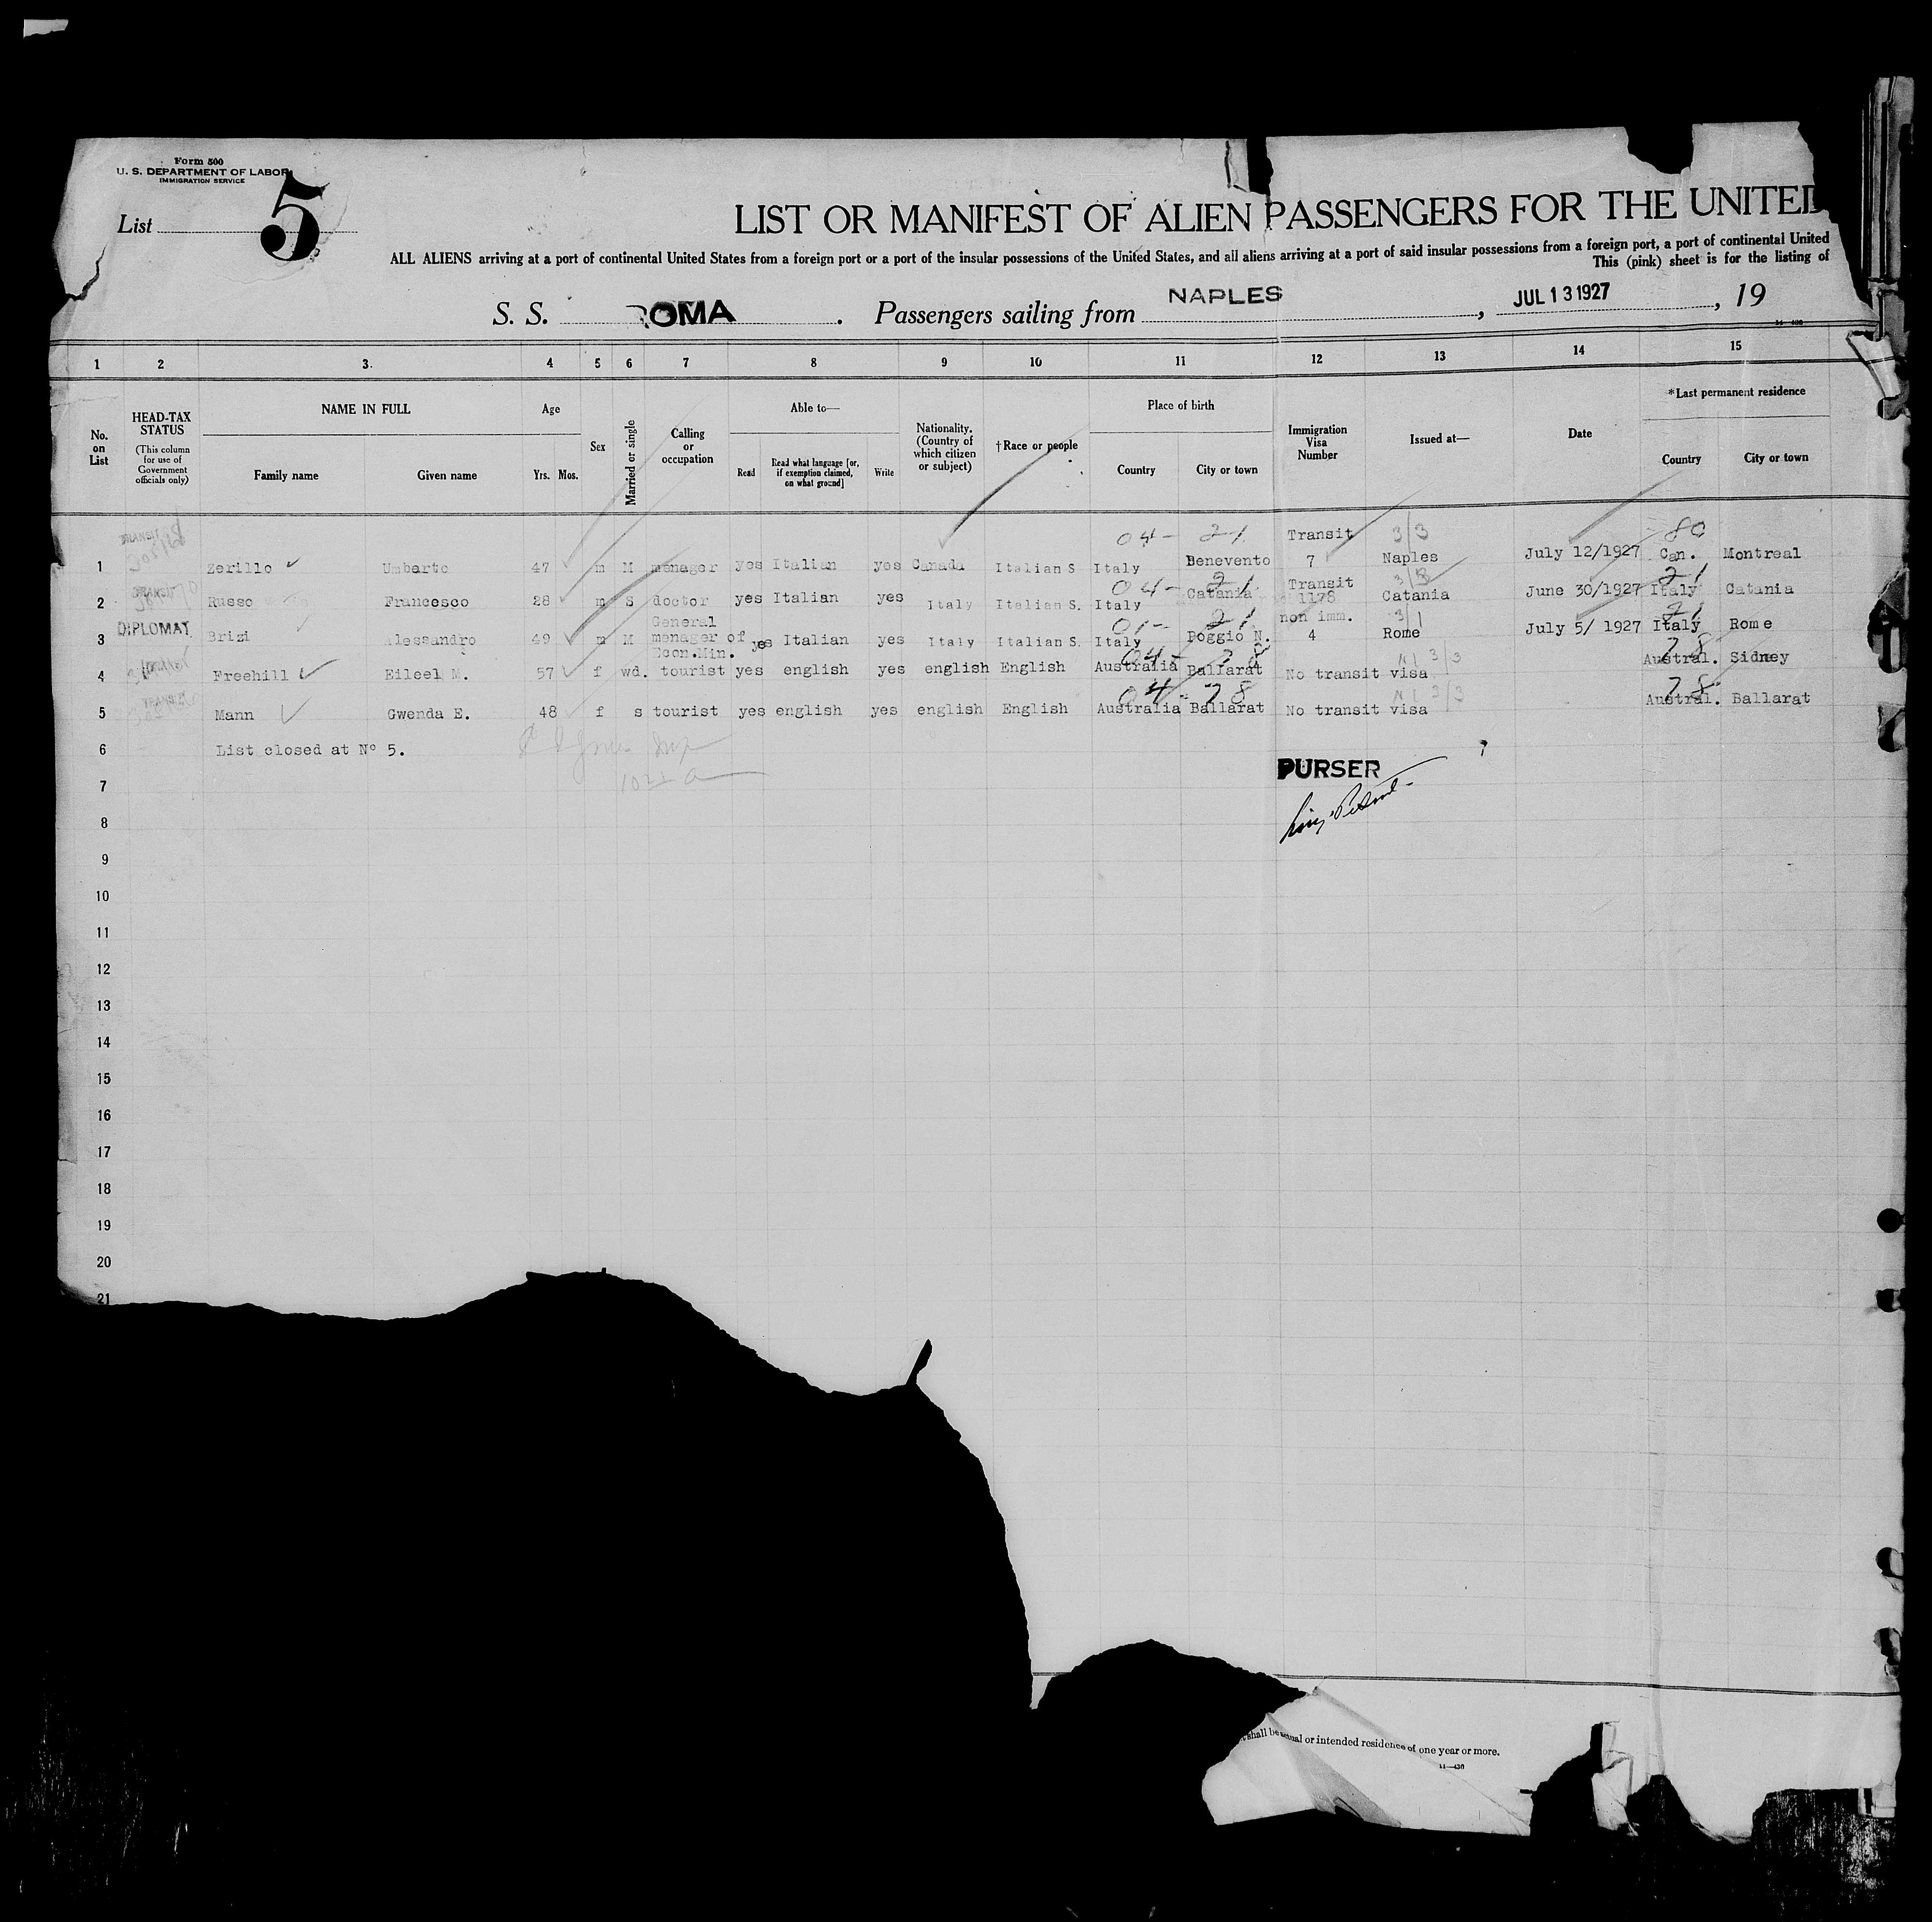 Form 500
U. S. DEPARTMENT OF LABOR
IMMIGRATION SERVICE
List 5
LIST OR MANIFEST OF ALIEN PASSENGERS FOR THE UNITED
ALL ALIENS arriving at a port of continental United States from a foreign port or a port of the insular possessions of the United States, and all aliens arriving at a port of said insular possessions from a foreign port, a port of continental United
This (pink) sheet is for the listing of
S. S. ROMA. Passengers sailing from NAPLES, JUL 13 1927, 19
14—430
1 2 3. 4 5 6 7 8 9 10 11 12 13 14 15
No. on List
HEAD-TAX STATUS
(This column for use of Government officials only)
NAME IN FULL
Family name Given name
Age
Yrs. Mos.
Sex
Married or single
Calling or occupation
Able to—
Read
Read what language [or, if exemption claimed, on what ground]
Write
Nationality. (Country of which citizen or subject)
†Race or people
Place of birth
Country City or town
Immigration Visa Number
Issued at—
Date
*Last permanent residence
Country City or town
04- 21 Transit 3/3 80
1 Zerillo Umberto 47 m M manager yes Italian yes Canada Italian S Italy Benevento 7 Naples July 12/1927 Can. Montreal
04- 21 Transit 3/3 21
2 Russo Francesco 28 m S doctor yes Italian yes Italy Italian S. Italy Catania 1178 Catania June 30/1927 Italy Catania
General 01- 21 non imm. 3/1 21
3 DIPLOMAT Brizi Alessandro 49 m M menager of yes Italian yes Italy Italian S. Italy Poggio N. 4 Rome July 5/ 1927 Italy Rome
Econ.Min.
04- 78 3/3 78
4 Freehill Eileel M. 57 f wd. tourist yes english yes english English Australia Ballarat No transit visa Austral. Sidney
04- 78 3/3 78
5 Mann Gwenda E. 48 f s tourist yes english yes english English Australia Ballarat No transit visa Austral. Ballarat
6 List closed at Nº 5.
PURSER
7
8
9
10
11
12
13
14
15
16
17
18
19
20
21
shall be actual or intended residence of one year or more.
14—430